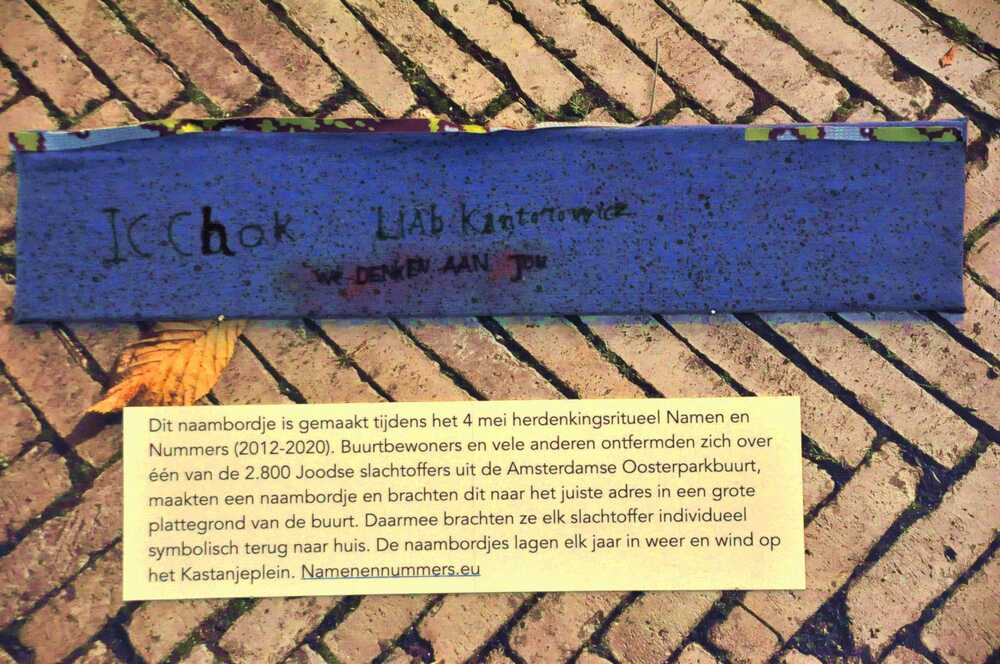 ICChak LIAb Kantorowicz
WE DENKEN AAN JOU
Dit naambordje is gemaakt tijdens het 4 mei herdenkingsritueel Namen en
Nummers (2012-2020). Buurtbewoners en vele anderen ontfermden zich over
één van de 2.800 Joodse slachtoffers uit de Amsterdamse Oosterparkbuurt,
maakten een naambordje en brachten dit naar het juiste adres in een grote
plattegrond van de buurt. Daarmee brachten ze elk slachtoffer individueel
symbolisch terug naar huis. De naambordjes lagen elk jaar in weer en wind op
het Kastanjeplein. Namenennummers.eu